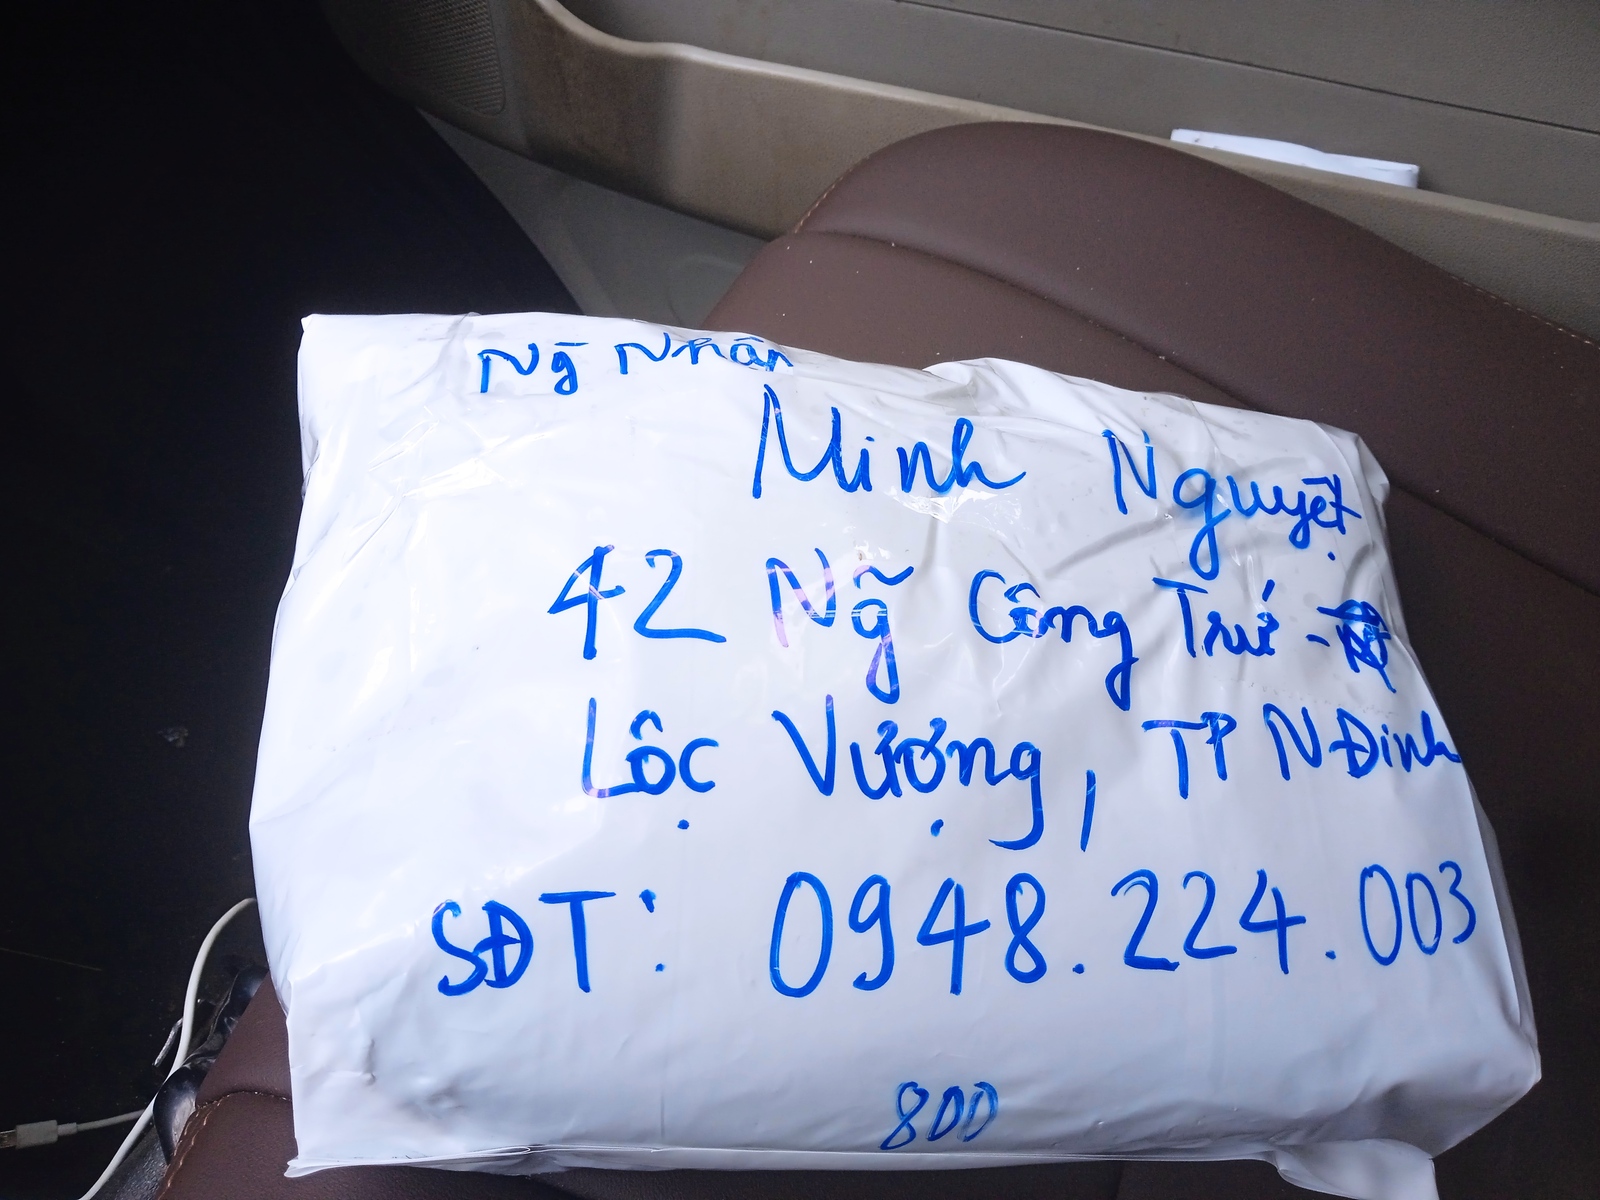 Ng̃ Nhận
Minh Nguyệt
42 Ng̃ Công Trứ -
Lộc Vượng, TP NĐinh
SĐT: 0948.224.003
800